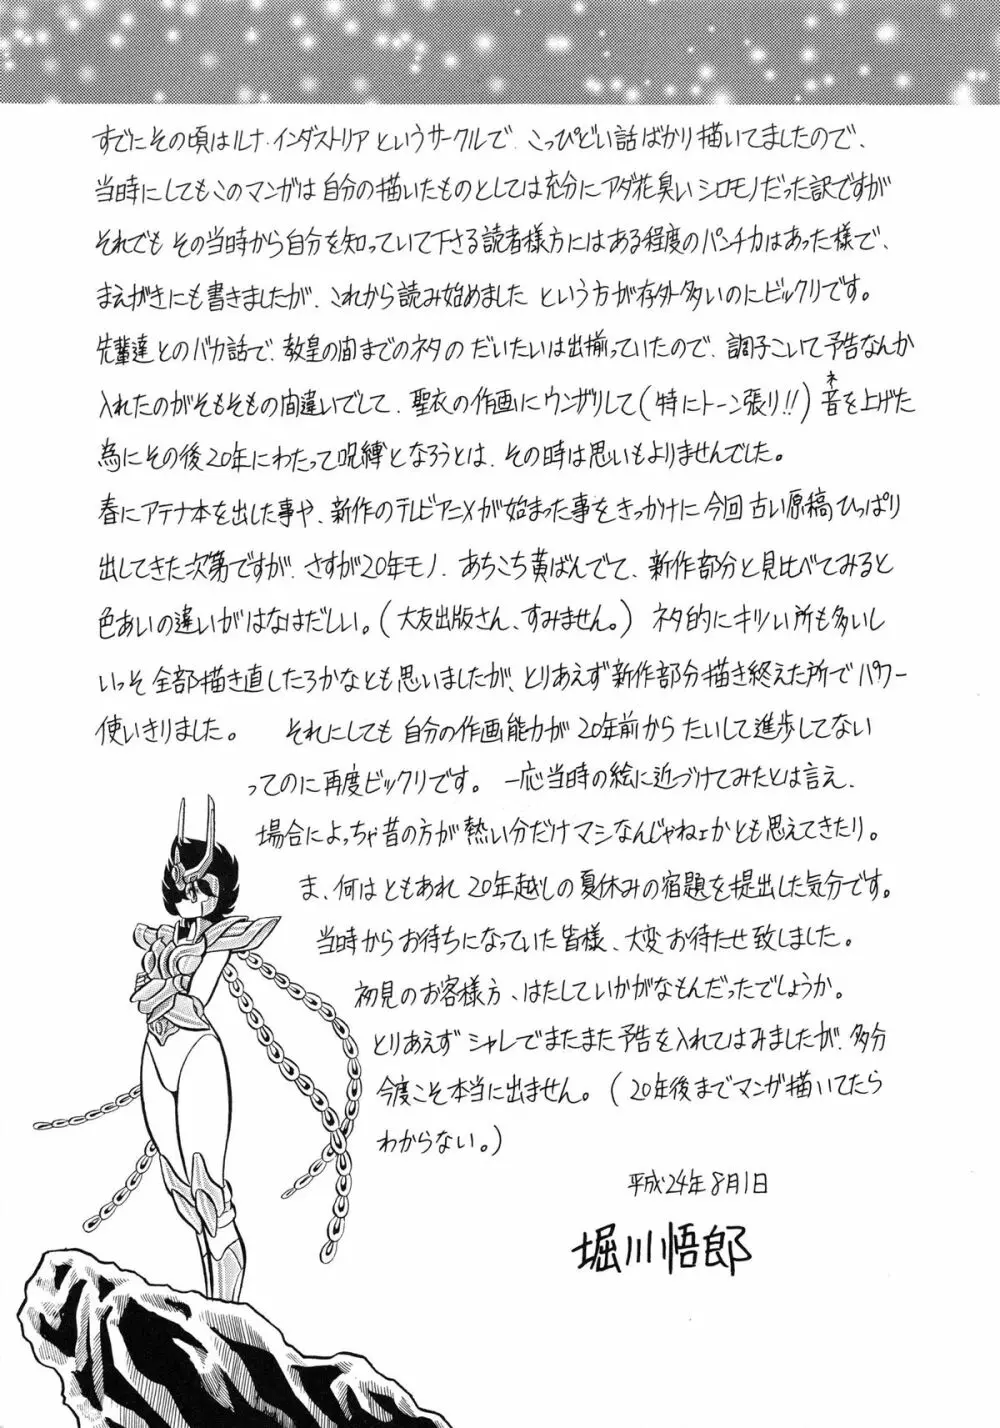 すでにその頃はルナ・インダストリアというサークルで、こっぴどい話ばかり描いてましたので、
当時にしてもこのマンガは自分の描いたものとしては充分にアダ花臭いシロモノだった訳ですが
それでもその当時から自分を知っていて下さる読者様方にはある程度のパンチ力はあった様で、
まえがきにも書きましたが、これから読み始めましたという方が存外多いのにビックリです。
先輩達とのバカ話で、教皇の間までのネタのだいたいは出揃っていたので、調子こいて予告なんか
入れたのがそもそもの間違いでして、聖衣の作画にウンザリして(特にトーン張り!!)音を上げた
ネ
為にその後20年にわたって呪縛となろうとは、その時は思いもよりませんでした。
春にアテナ本を出した事や、新作のテレビアニメが始まった事をきっかけに今回古い原稿ひっぱり
出してきた次第ですが、さすが20年モノ、あちこち黄ばんでて、新作部分と見比べてみると
色あいの違いがはなはだしい。(大友出版さん、すみません。)ネタ的にキツい所も多いし
いっそ全部描き直したろかなとも思いましたが、とりあえず新作部分描き終えた所でパワー
使いきりました。 それにしても自分の作画能力が20年前からたいして進歩してない
ってのに再度ビックリです。一応当時の絵に近づけてみたとは言え、
場合によっちゃ昔の方が熱い分だけマシなんじゃねェかとも思えてきたり。
ま、何はともあれ20年越しの夏休みの宿題を提出した気分です。
当時からお待ちになっていた皆様、大変お待たせ致しました。
初見のお客様方、はたしていかがなもんだったでしょうか。
とりあえずシャレでまたまた予告を入れてはみましたが、多分
今度こそ本当に出ません。(20年後までマンガ描いてたら
わからない。)
平成24年8月1日
堀川悟郎